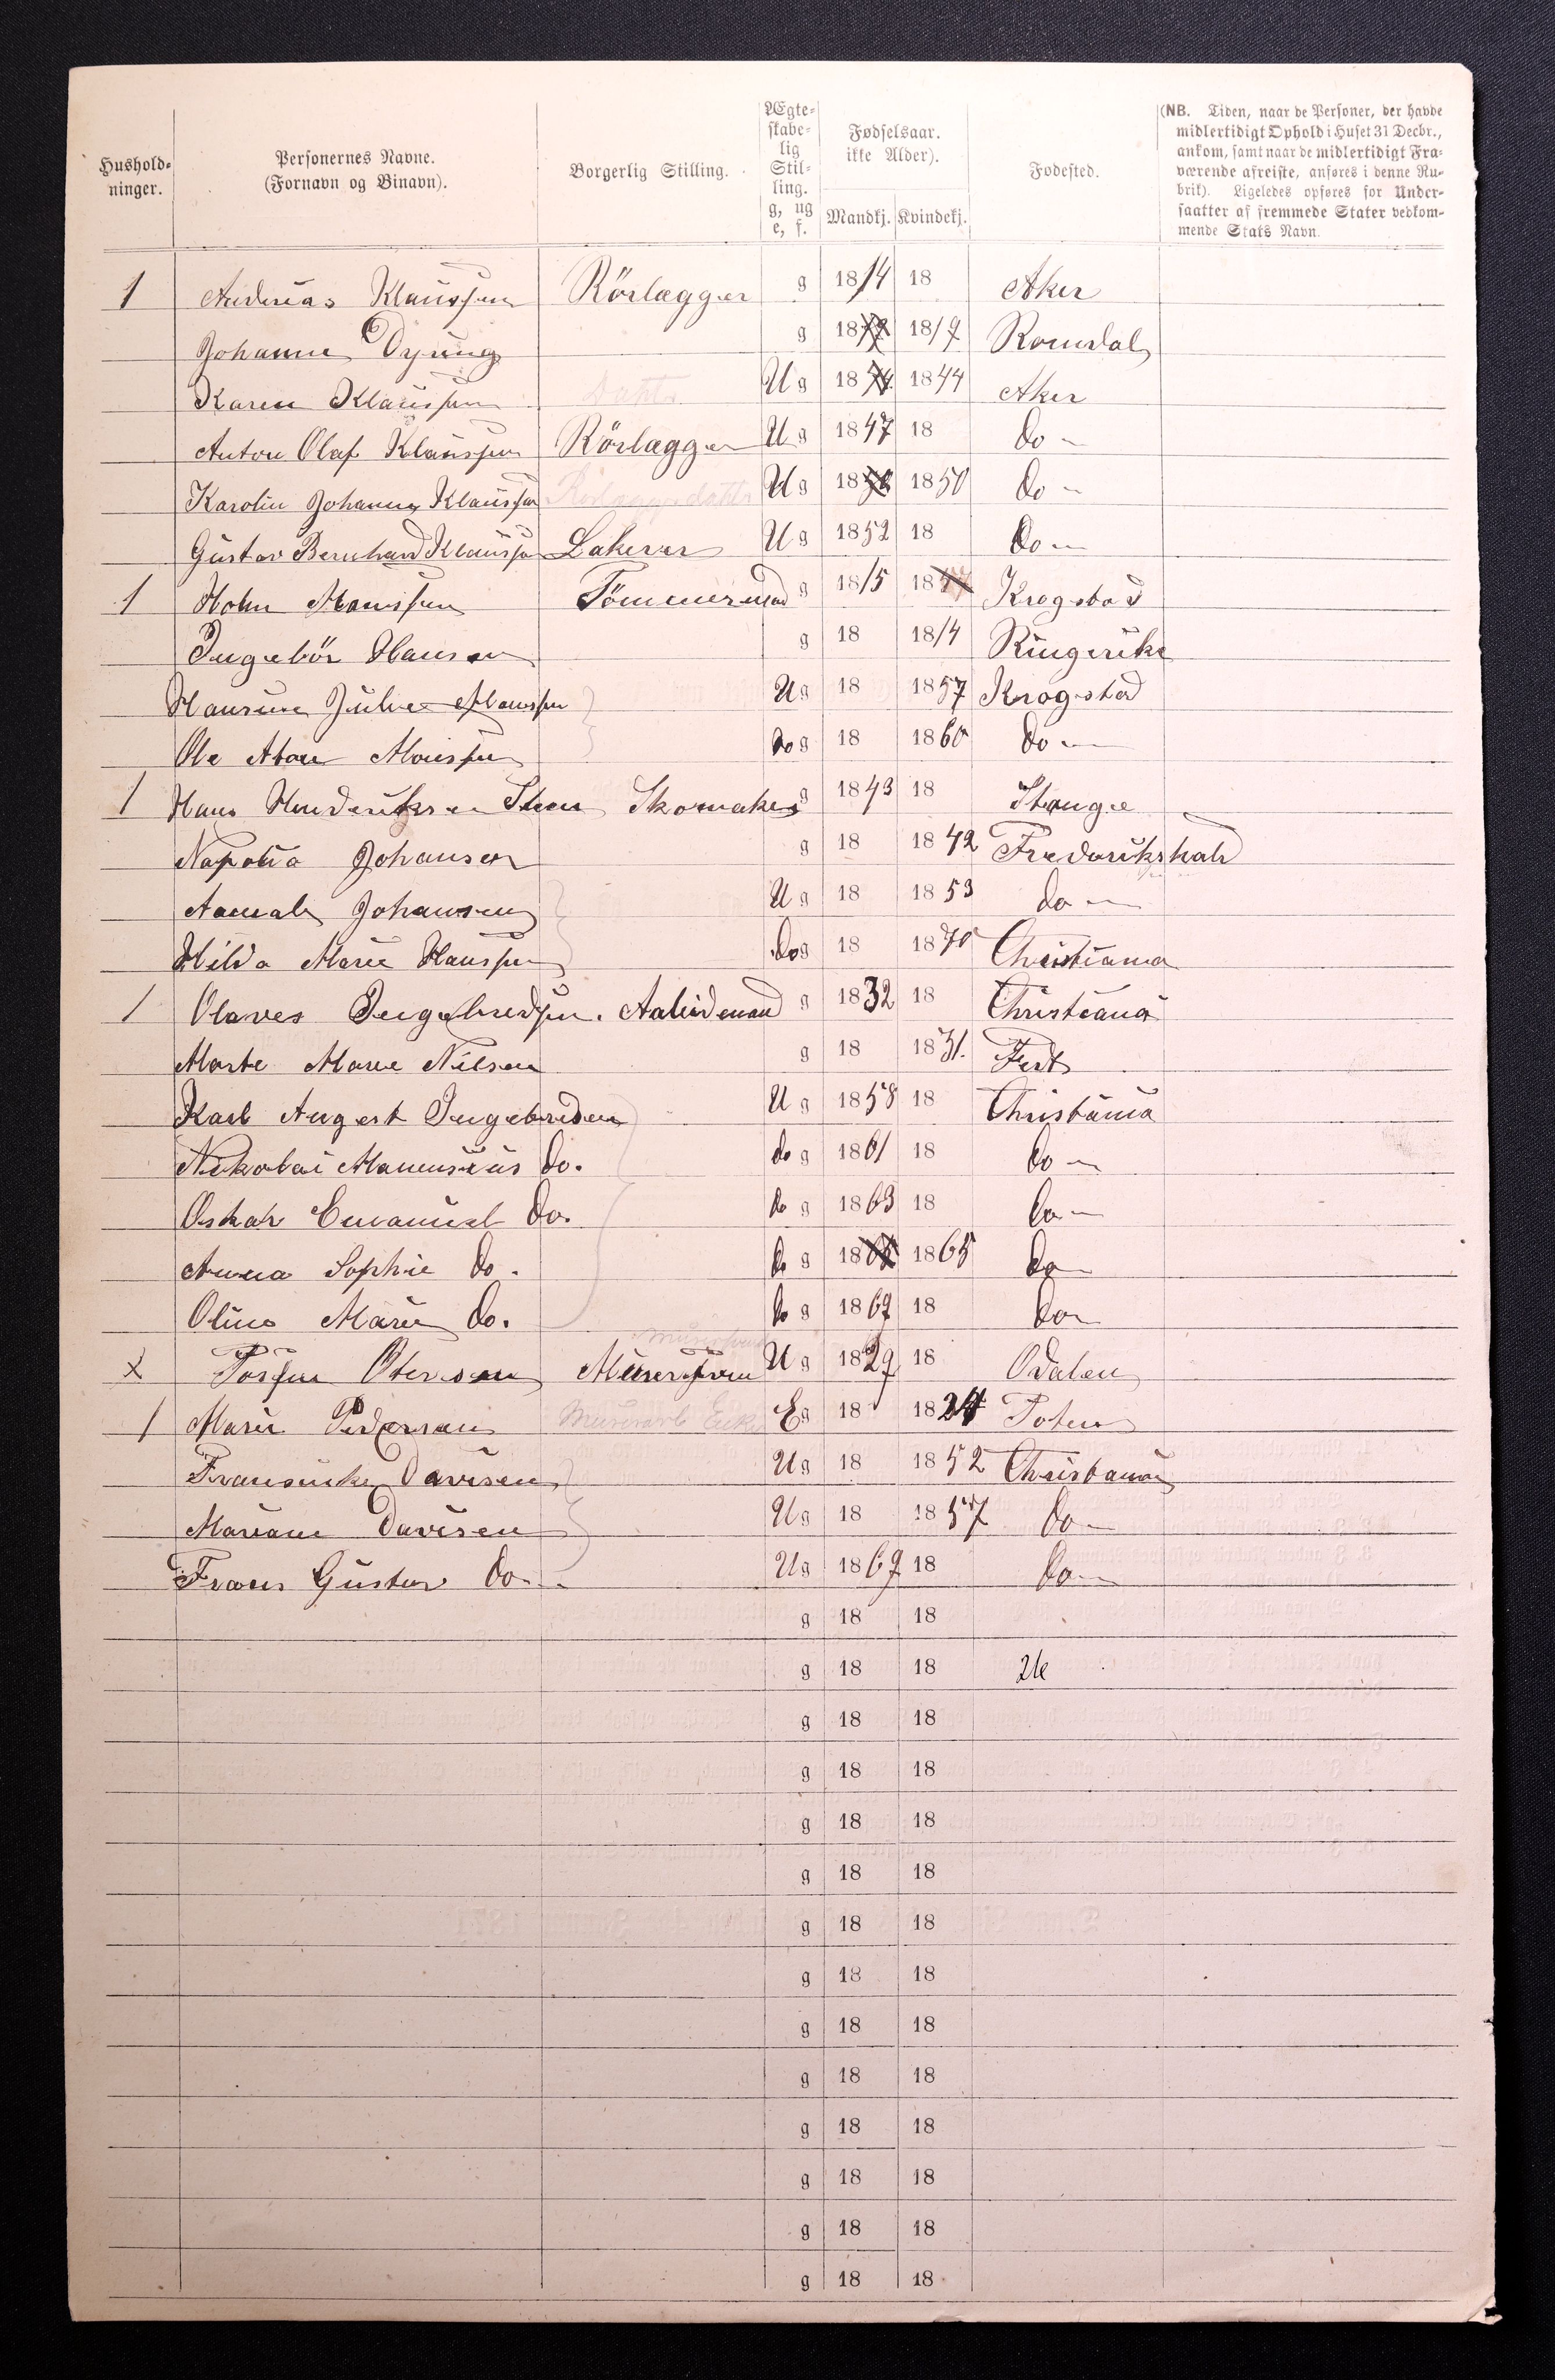 Hushold-
ninger.
Personernes Navne.
(Fornavn og Binavn).
Borgerlig Stilling.
Ægte-
skabe-
lig
Stil-
ling.
g, ug
e, f.
Fødselsaar.
ikke Alder).
Mandkj. Kvindekj.
Fødested.
(NB. Tiden, naar de Personer, der havde
midlertidigt Ophold i Huset 31 Decbr.,
ankom, samt naar de midlertidigt Fra-
værende afreiste, anføres i denne Ru-
brik). Ligeledes opføres for Under-
saatter af fremmede Stater vedkom-
mende Stats Navn.
1 Andreas Klaussen Rörlægger g 1814 18 Aker
Johanne Dyring g 18 1819 Romsdal
Karen Klaussen Datt. U g 18 1844 Aker
Anton Olaf Klaussen Rörlægger U g 1847 18 do
Karolin Johanna Klaussen Rörlæggerdatter U g 18 1850 do
Gustav Bernhard Klaussen Lakerer U g 1852 18 do
1 Tömmermand g 1815 18 Krogstad
Ingebör Hansen g 18 1814 Ringerike
Hansine Julie U g 18 1857 Krogstad
Ole do g 18 1860 do
1 Hans Hendriksen Skomaker g 1843 18 Stange
Johansen g 18 1842 Frederikshald
Johansen U g 18 1853 do
Hilda Marie Hanssen do g 18 1870 Christiania
1 Olaves Ingebredsen. g 1832 18 Christiania
Marte Marie Nilsen g 18 1831. Fet
Karl Augest Ingebredsen U g 1858 18 Christiania
Nikolai do. do g 1861 18 do
Oskar Emanuel do. do g 1863 18 do
Anna Sophie do. do g 18 1865 do
Oline Marie do. do g 1867 18 do
x U g 1829 18 Odalen
1 Marie Pedersen Murerarb Enke E g 18 1824 Toten
Davisen U g 18 1852 Christiania
Mariane Davisen U g 18 1857 do
Frans Gustav do. U g 1869 18 do
g 18 18
g 18 18 26
g 18 18
g 18 18
g 18 18
g 18 18
g 18 18
g 18 18
g 18 18
g 18 18
g 18 18
g 18 18
g 18 18
g 18 18